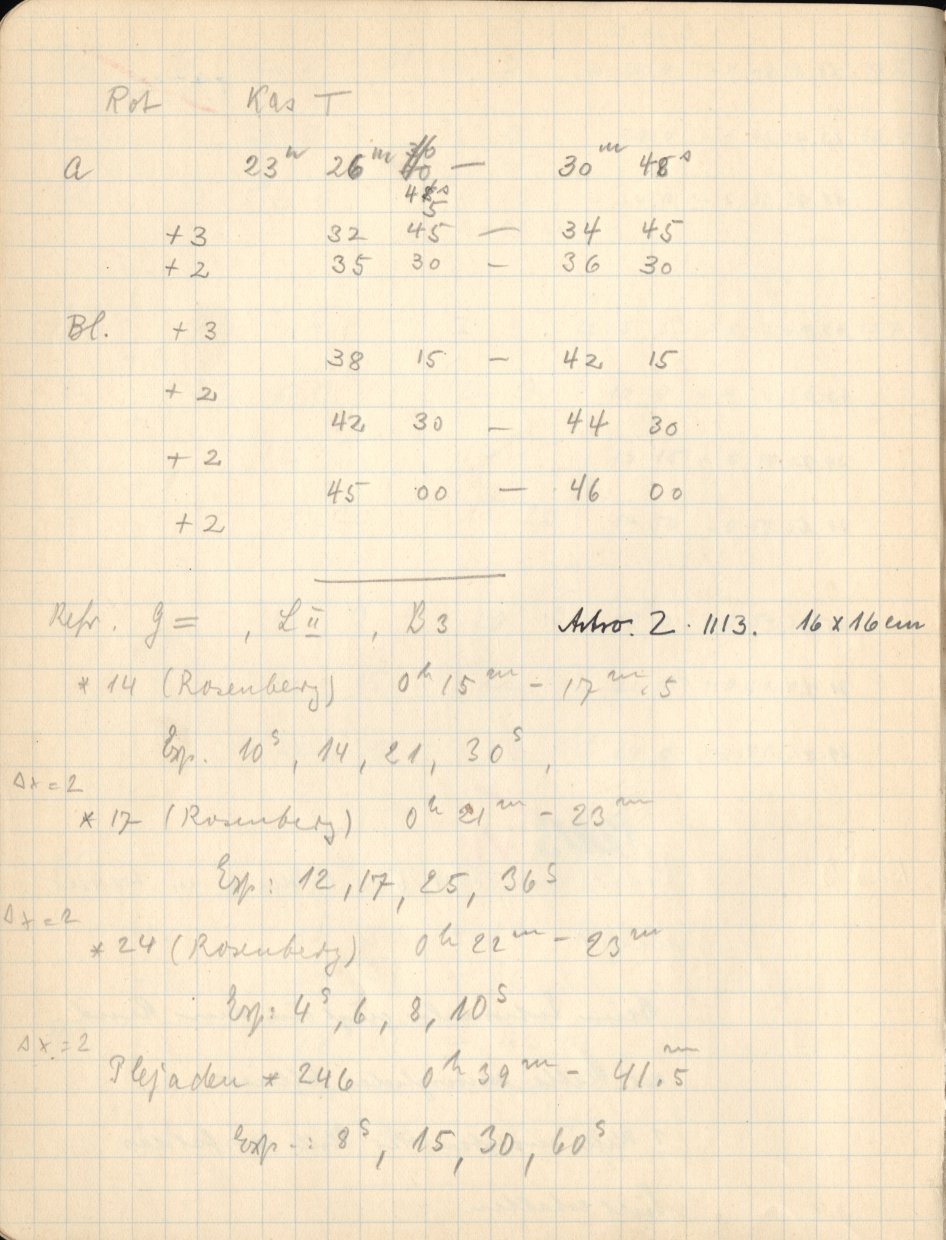 Rot Kas T
a 23h 26m — 30m 48s
48s
5
+3 32 45 — 34 45
+2 35 30 — 36 30
Bl. +3
38 15 — 42 15
+2
42 30 — 44 30
+2
45 00 — 46 00
+2
Refr. g = , L II , B3 Astro. Z. 1113. 16x16cm
* 14 (Rosenberg) 0h 15m - 17m.5
Exp. 10s, 14, 21, 30s,
Δx=2
* 17 (Rosenberg) 0h 21m - 23m
Exp: 12, 17, 25, 36s
Δx=2
* 24 (Rosenberg) 0h 22m - 23m
Exp: 4s, 6, 8, 10s
Δx=2
Plejaden * 246 0h 39m - 41.5m
Exp.: 8s, 15, 30, 60s